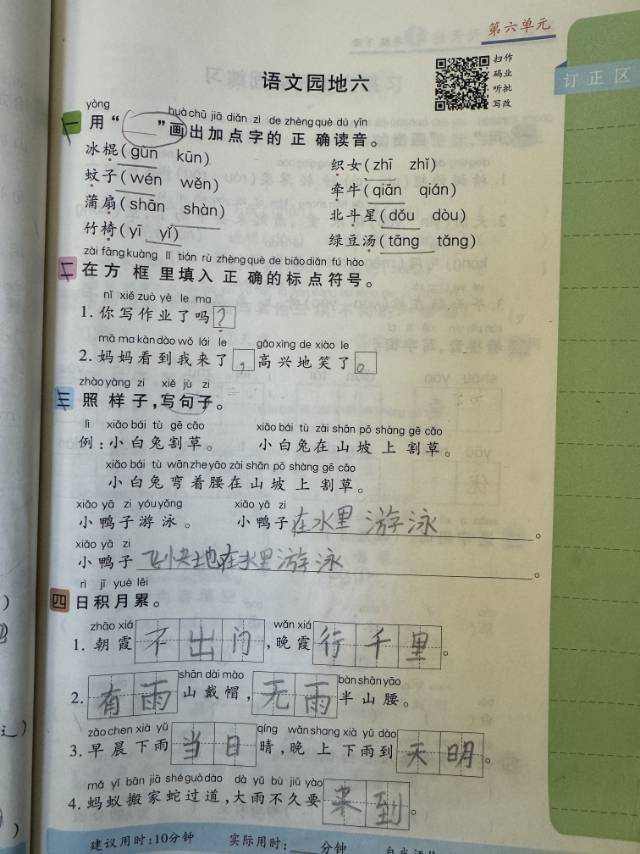 第六单元
语文园地六
扫作
码业
听批
写改
订正区
yòng huà chū jiā diǎn zì de zhèng què dú yīn
一 用“ ”画出加点字的正确读音。
冰棍(gùn kūn) 织女(zhī zhǐ)
蚊子(wén wěn) 牵牛(qiān qián)
蒲扇(shān shàn) 北斗星(dǒu dòu)
竹椅(yī yǐ) 绿豆汤(tāng tǎng)
zài fāng kuàng lǐ tián rù zhèng què de biāo diǎn fú hào
二 在方框里填入正确的标点符号。
nǐ xiě zuò yè le ma
1. 你写作业了吗?
mā ma kàn dào wǒ lái le gāo xìng de xiào le
2. 妈妈看到我来了,高兴地笑了。
zhào yàng zi xiě jù zi
三 照样子,写句子。
lì xiǎo bái tù gē cǎo xiǎo bái tù zài shān pō shàng gē cǎo
例:小白兔割草。 小白兔在山坡上割草。
xiǎo bái tù wān zhe yāo zài shān pō shàng gē cǎo
小白兔弯着腰在山坡上割草。
xiǎo yā zi yóu yǒng xiǎo yā zi
小鸭子游泳。 小鸭子在水里游泳。
xiǎo yā zi
小鸭子飞快地在水里游泳。
rì jī yuè lěi
四 日积月累。
zhāo xiá wǎn xiá
1. 朝霞不出门,晚霞行千里。
shān dài mào bàn shān yāo
2. 有雨山戴帽,无雨半山腰。
zǎo chen xià yǔ qíng wǎn shang xià yǔ dào
3. 早晨下雨当日晴,晚上下雨到天明。
mǎ yǐ bān jiā shé guò dào dà yǔ bù jiǔ yào
4. 蚂蚁搬家蛇过道,大雨不久要来到。
建议用时:10分钟 实际用时: 分钟